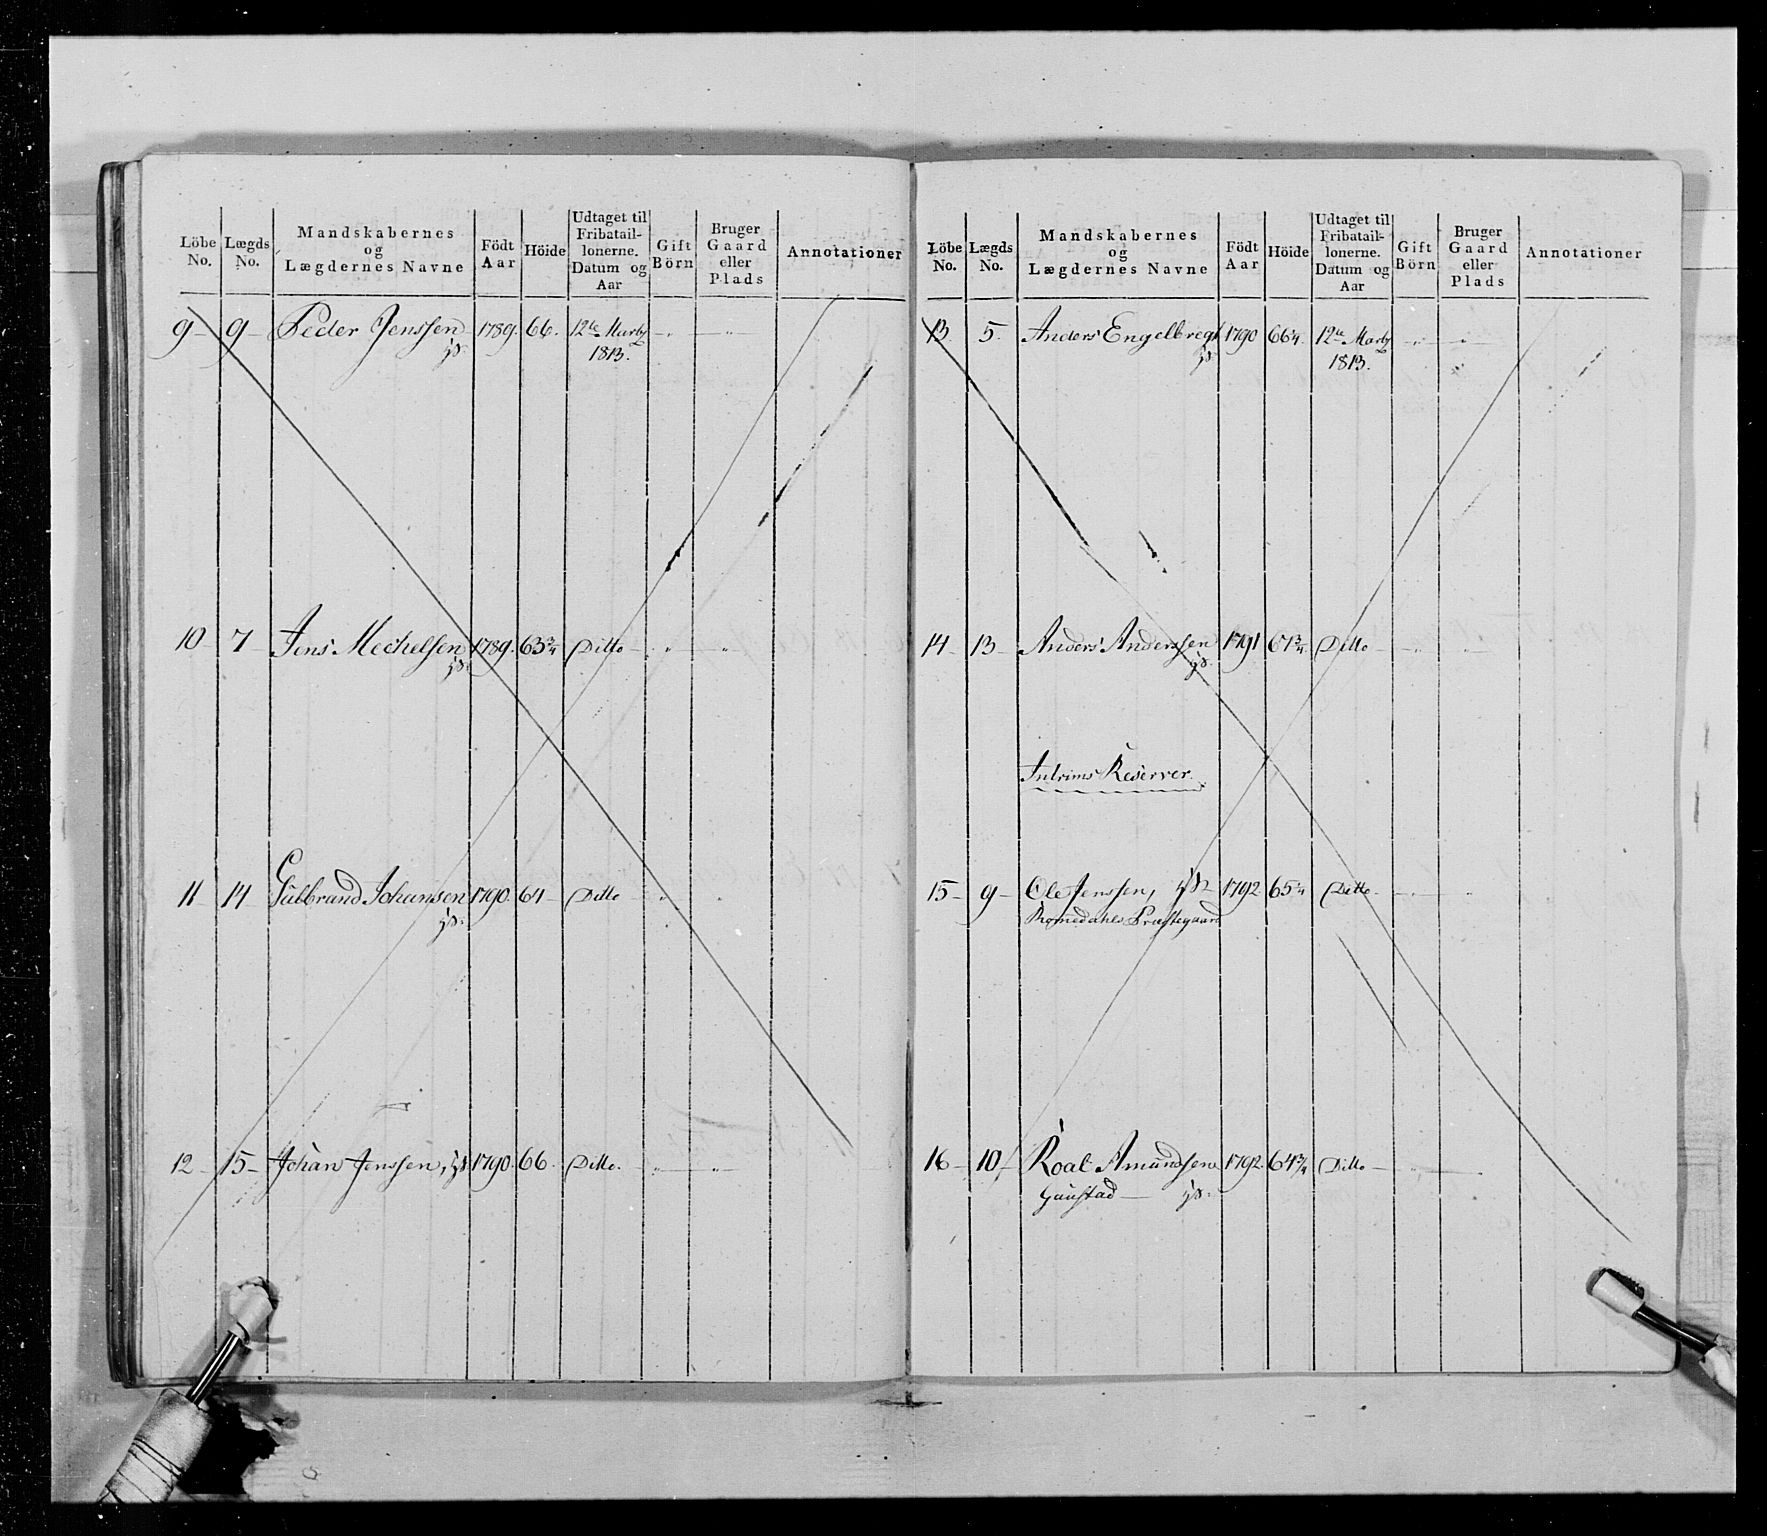 Löbe No. Lægds No. Mandskabernes og Lægdernes Navne Födt Aar Höide Udtaget til Fribataillonerne. Datum og Aar Gift Börn Bruger Gaard eller Plads Annotationer
9 9 Peder Jenssen 1789. 66. 12te Marty
1813.
10 7 Jens Mechelsen 1789. 63¾ Ditto
11 14 Gulbrand Johansen 1790 64 Ditto
12 15 Johan Jenssen, 1790. 66. Ditto.
Löbe No. Lægds No. Mandskabernes og Lægdernes Navne Födt Aar Höide Udtaget til Fribataillonerne. Datum og Aar Gift Börn Bruger Gaard eller Plads Annotationer
13 5. Anders Engelbregt 1790 66¼. 12te Marty
1813.
14 13 Anders Anderssen 1791 67¾ Ditto
Intrims Reserver.
15 9 Ole Jenssen, 1792 65¼ Ditto
Romedahls Præstegaard
16 10 Roal Amundsen 1792. 64¾ Ditto
Gaustad